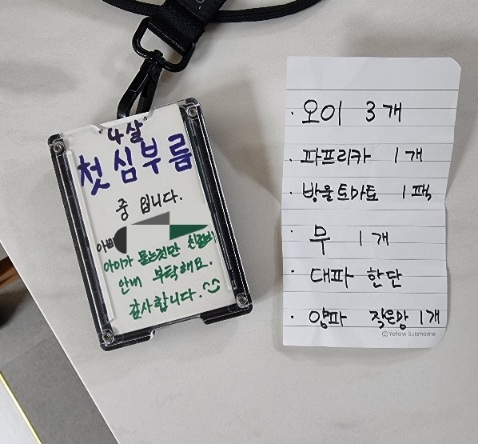 4살
첫 심부름
중 입니다.
아이가 물는다면 친절히
안내 부탁해요.
감사합니다.
· 오이 3개
· 파프리카 1개
· 방울토마토 1팩
· 무 1개
· 대파 한단
· 양파 작은망 1개
© Yellow Submarine